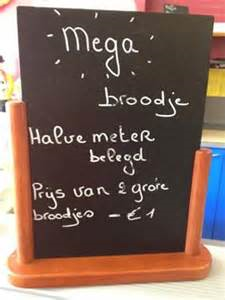 Mega
broodje
Halve meter
belegd
Prijs van 2 grote
broodjes - € 1